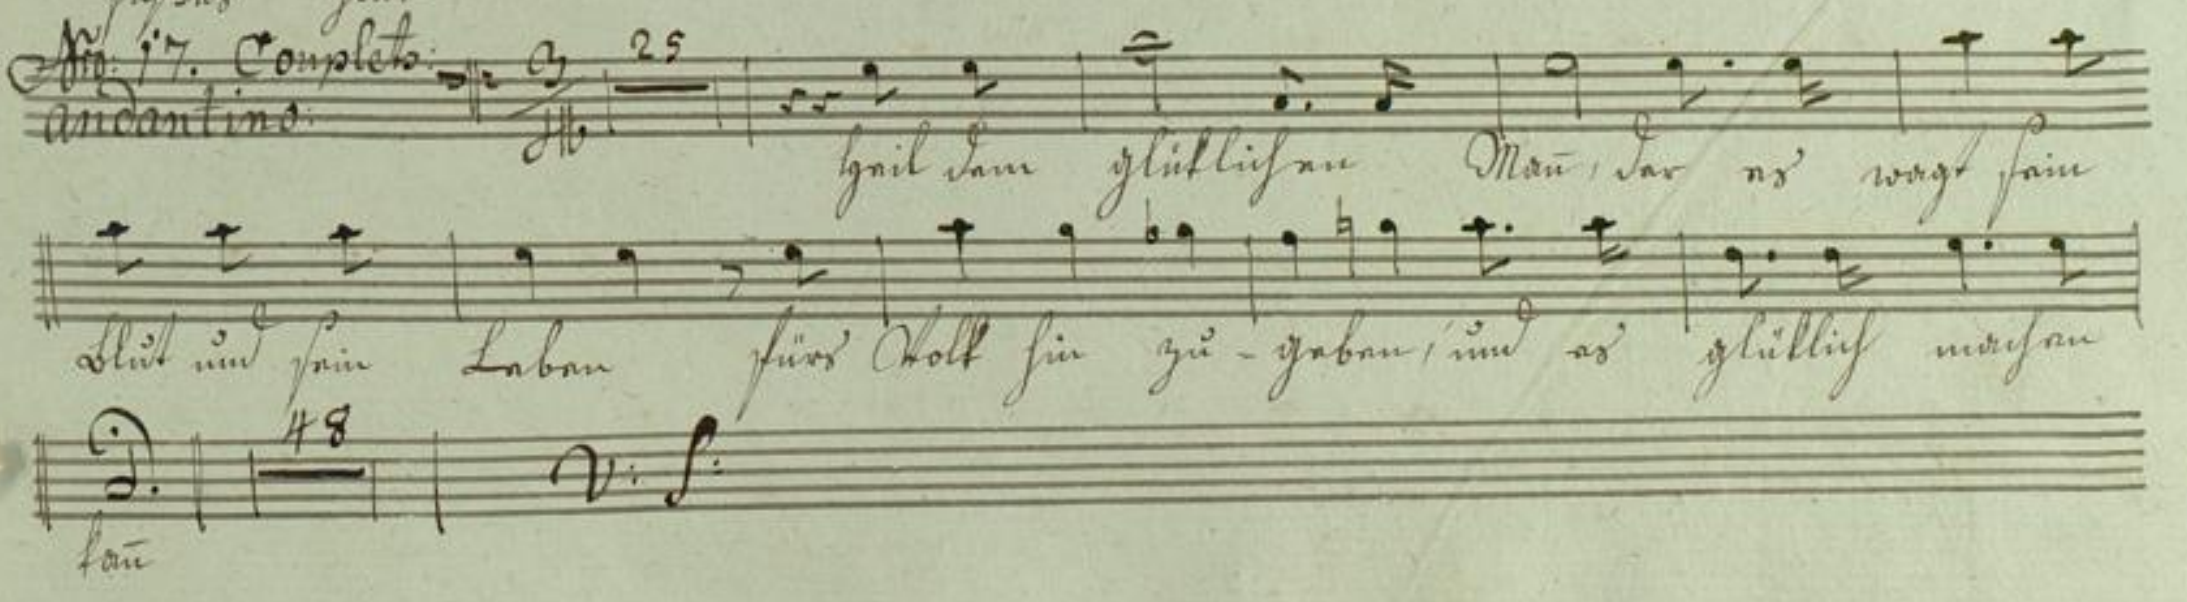 Nro: 17. Couplets:
andantino:
25
Heil dem glüklichen Man̄, der es wagt sein
Blut und sein Leben fürs Volk hin zu - geben, und es glüklich machen
48
V: S:
kan̄